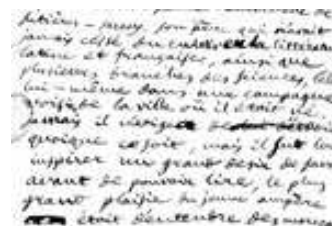 jamais cessé de cultiver la littérature
latine et française, ainsi que
plusieurs branches des sciences,
lui-même dans une campagne
de la ville où il était né.
jamais il n'exigea de
quoique ce soit, mais il sut lui
inspirer un grand désir de
avant de pouvoir lire, le plus
grand plaisir du jeune ampère
était d'entendre des